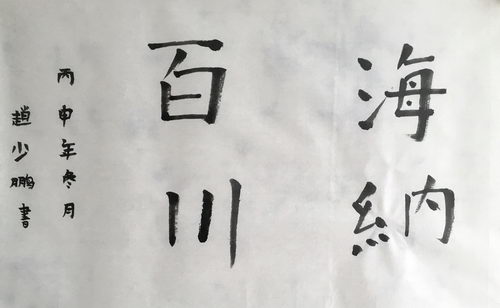 海納
百川
丙申年冬月
趙少鵬書